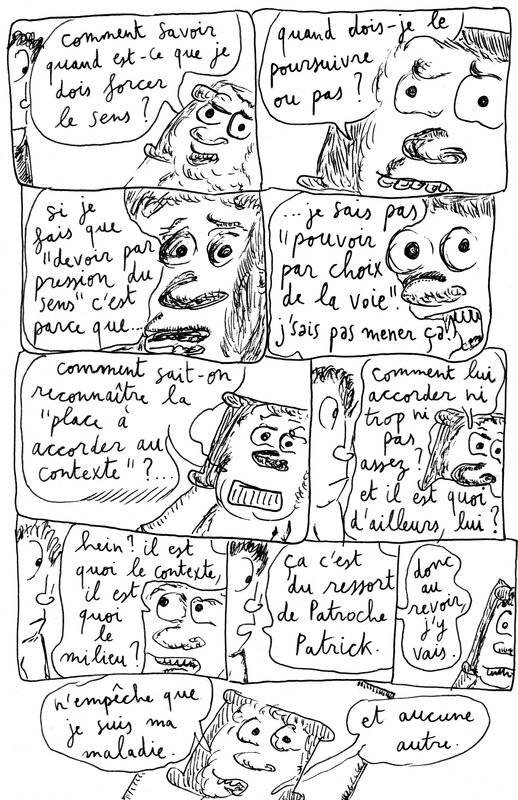 comment savoir
quand est-ce que je
dois forcer
le sens ?
quand dois-je le
poursuivre
ou pas ?
si je
fais que
"devoir par
pression du
sens" c'est
parce que...
...je sais pas
"pouvoir
par choix
de la voie".
j'sais pas mener ça!
comment sait-on
reconnaître la
"place à
accorder au
contexte" ?...
comment lui
accorder ni
trop ni
pas
assez ?
et il est quoi
d'ailleurs, lui ?
hein? il est
quoi le contexte,
il est
quoi
le
milieu ?
ça c'est
du ressort
de Patroche
Patrick.
donc
au
revoir,
j'y
vais.
n'empêche que
je suis ma
maladie.
et aucune
autre.